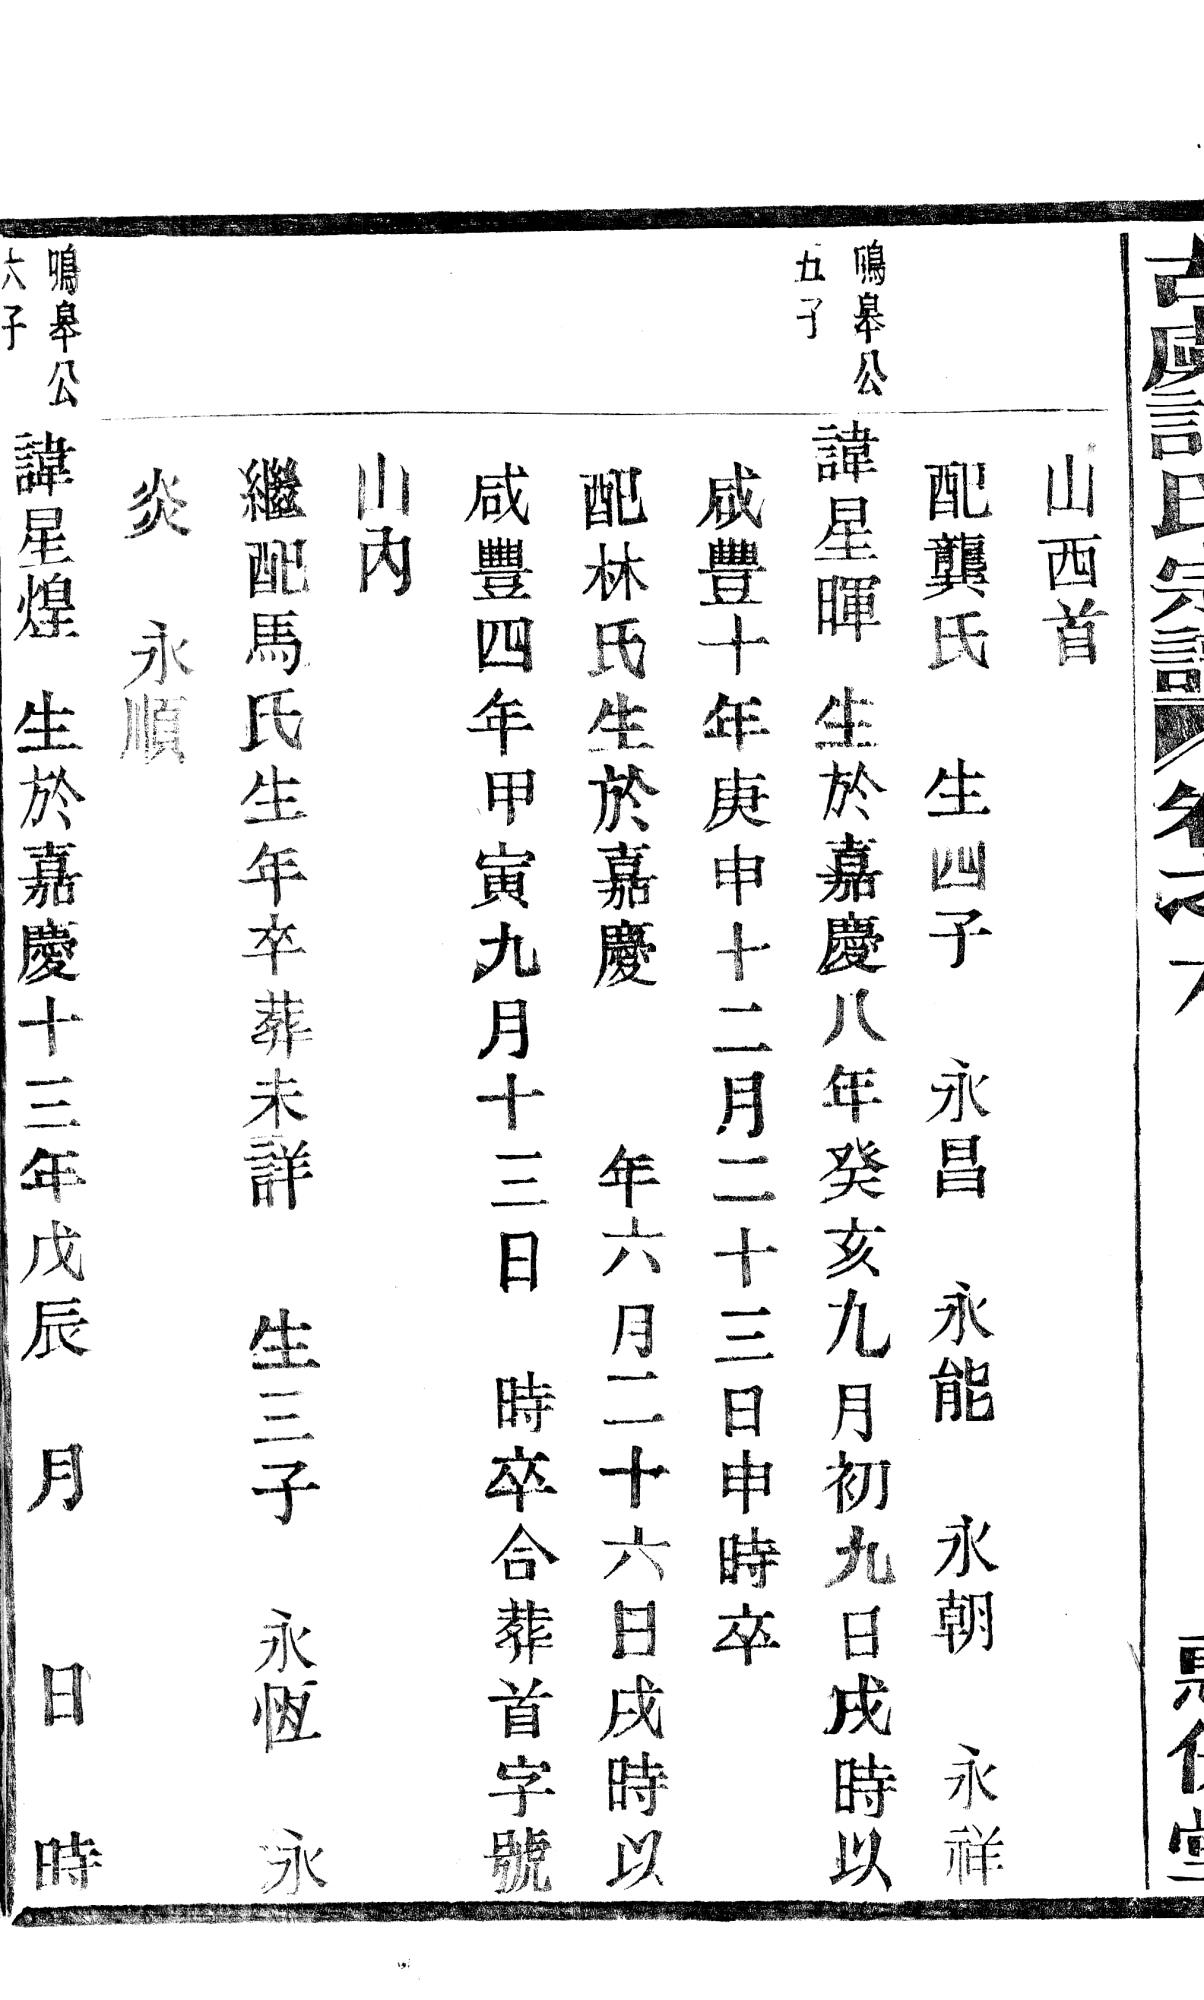 宗譜
卷之
山西首
配龔氏 生四子 永昌 永能 永朝 永祥
鳴皋公
五子
諱星暉 生於嘉慶八年癸亥九月初九日戌時以
咸豐十年庚申十二月二十三日申時卒
配林氏生於嘉慶 年六月二十六日戌時以
咸豐四年甲寅九月十三日 時卒合葬首字號
山內
繼配馬氏生年卒葬未詳 生三子 永恆 永
炎 永順
鳴皋公
六子
諱星煌 生於嘉慶十三年戊辰 月 日 時